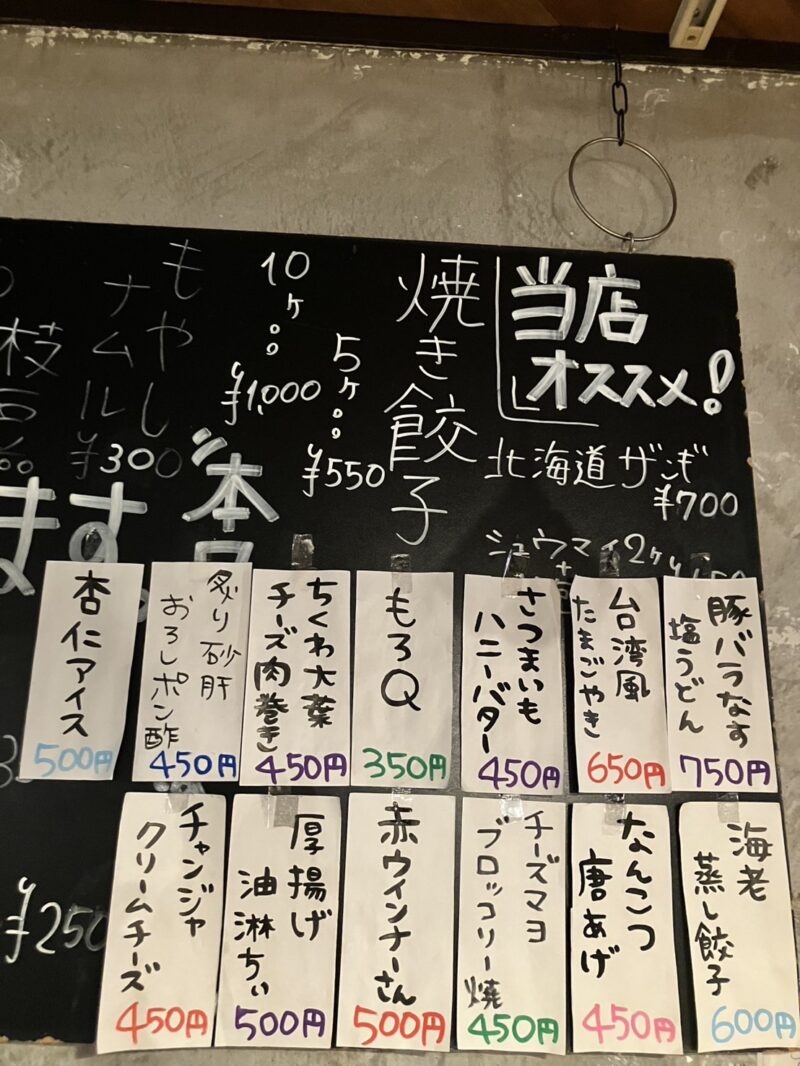 当店
オススメ!
北海道ザンギ
¥700
シュウマイ2ヶ
焼き餃子
5ヶ。。
¥550
10ヶ。。
¥1,000
もやし
ナムル
¥300
枝
本
ます。
¥250
豚バラなす
塩うどん
750円
台湾風
たまごやき
650円
さつまいも
ハニーバター
450円
もろQ
350円
ちくわ大葉
チーズ肉巻き
450円
炙り砂肝
おろしポン酢
450円
杏仁アイス
500円
海老
蒸し餃子
600円
なんこつ
唐あげ
450円
チーズマヨ
ブロッコリー焼
450円
赤ウインナーさん
500円
厚揚げ
油淋ちぃ
500円
チャンジャ
クリームチーズ
450円